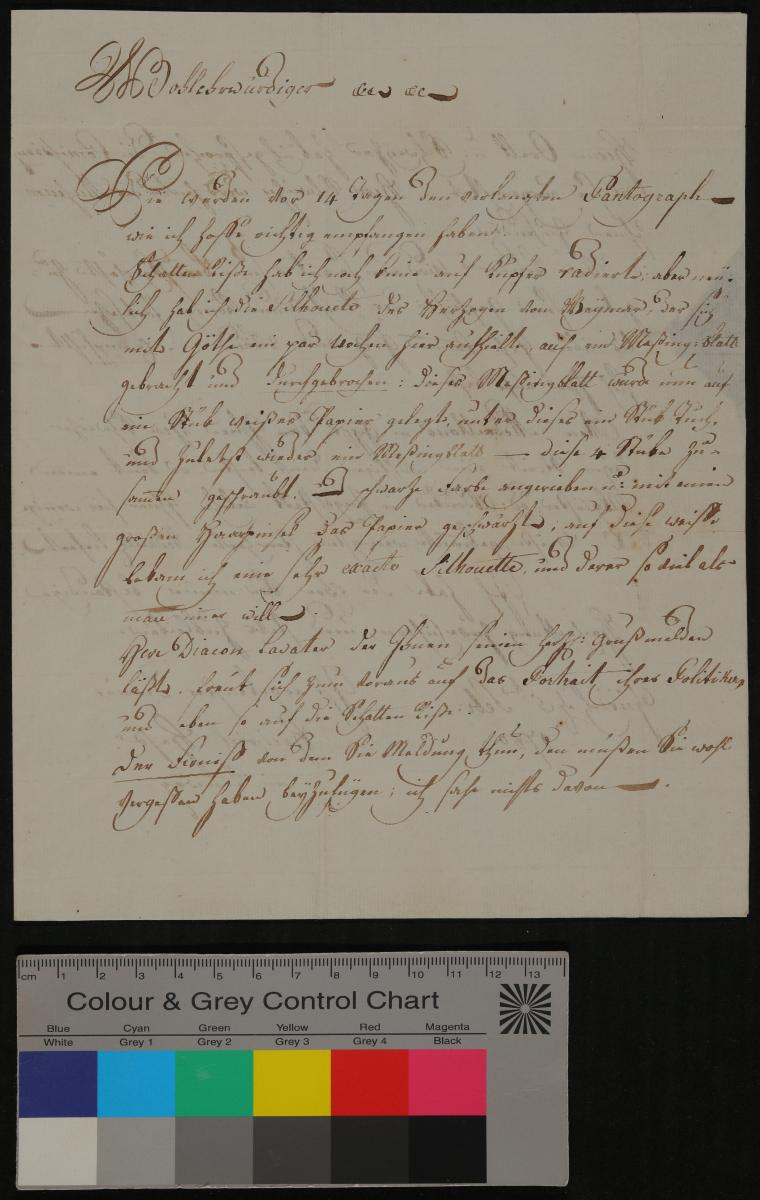 Wohlehrwürdiger &c &c
Sie werden vor 14 Tagen den verlangten Pantograph
wie ich hoffe richtig empfangen haben.
Schatten Riße hab ich noch keine auf Kupfer radiert: aber neü-
lich hab ich die Silhouete des Herzogen von Weymar, der sich
mit Göthe ein par Wochen hier aufhielte, auf ein Meßing-blatt
gebracht und durchgebrochen: dieses Meßingblatt wurde nun auf
ein Stük weißes Papier gelegt, unter dieses ein Stük Tuch,
und zuletst wieder ein Meßingblatt — diese 4 Stüke zu-
samen geschraubt. und schwarze Farbe angerieben u: mit einem
großen Haarpinsel das Papier geschwärzt, auf diese weise
bekam ich eine sehr exacte Silhouette, und derer so viel als
man imer will.
Herr Diacon Lavater der Ihnen seinen herzl: Gruß melden
läßt, freüt sich zum voraus auf das Portrait ihres Politikers
und eben so auf die Schatten Riße.
Der Firniss von dem Sie Meldung thun, den müßen Sie wohl
vergeßen haben beyzufügen; ich sahe nichts davon —.
Colour & Grey Control Chart
cm 1 2 3 4 5 6 7 8 9 10 11 12 13
Blue Cyan Green Yellow Red Magenta
White Grey 1 Grey 2 Grey 3 Grey 4 Black